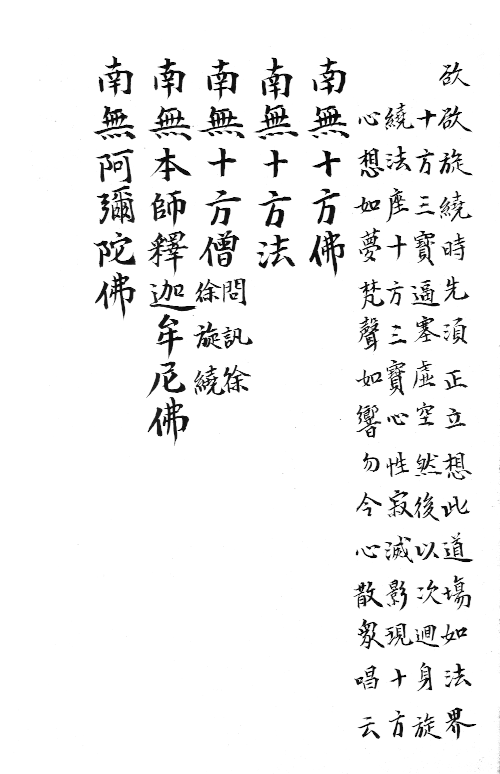 欲欲旋繞時先須正立想此道場如法界
十方三寶逼塞虛空然後以次迴身旋
繞法座十方三寶心性寂滅影現十方
心想如夢梵聲如響勿今心散衆唱云
南無十方佛
南無十方法
南無十方僧問訊徐
徐旋繞
南無本師釋迦牟尼佛
南無阿彌陀佛